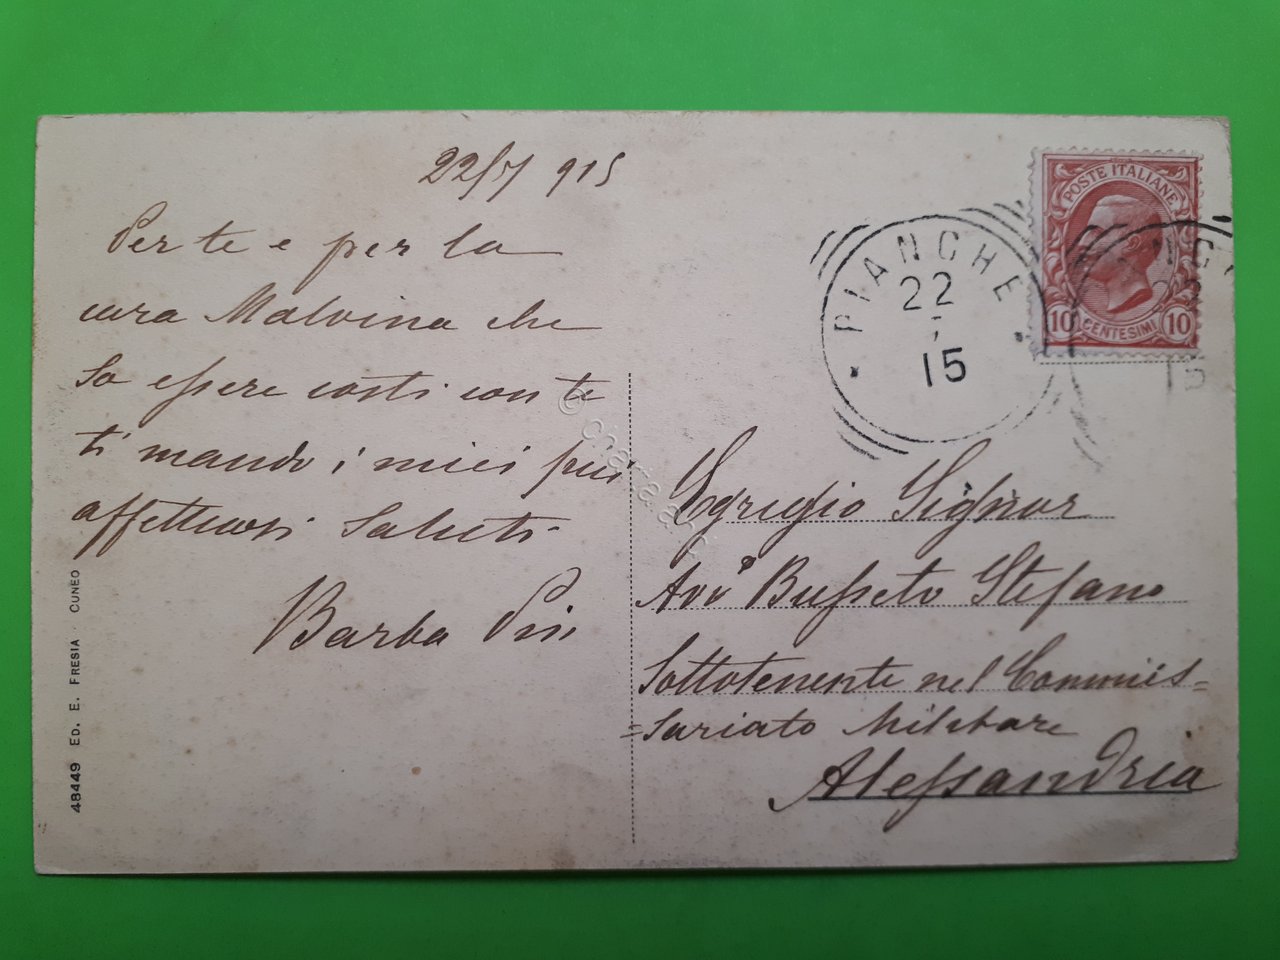 22/7 915
Per te e per la
cara Malvina che
so essere costì con te
ti mando i miei più
affettuosi saluti
Barba Pin
48449 ED. E. FRESIA - CUNEO
POSTE ITALIANE
10 CENTESIMI 10
PIANCHE
22
7
15
22
15
Egregio Signor
Avv Busseto Stefano
Sottotenente nel Commis=
=sariato Militare
Alessandria